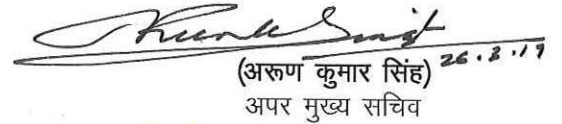 26.2.19
(अरूण कुमार सिंह)
अपर मुख्य सचिव